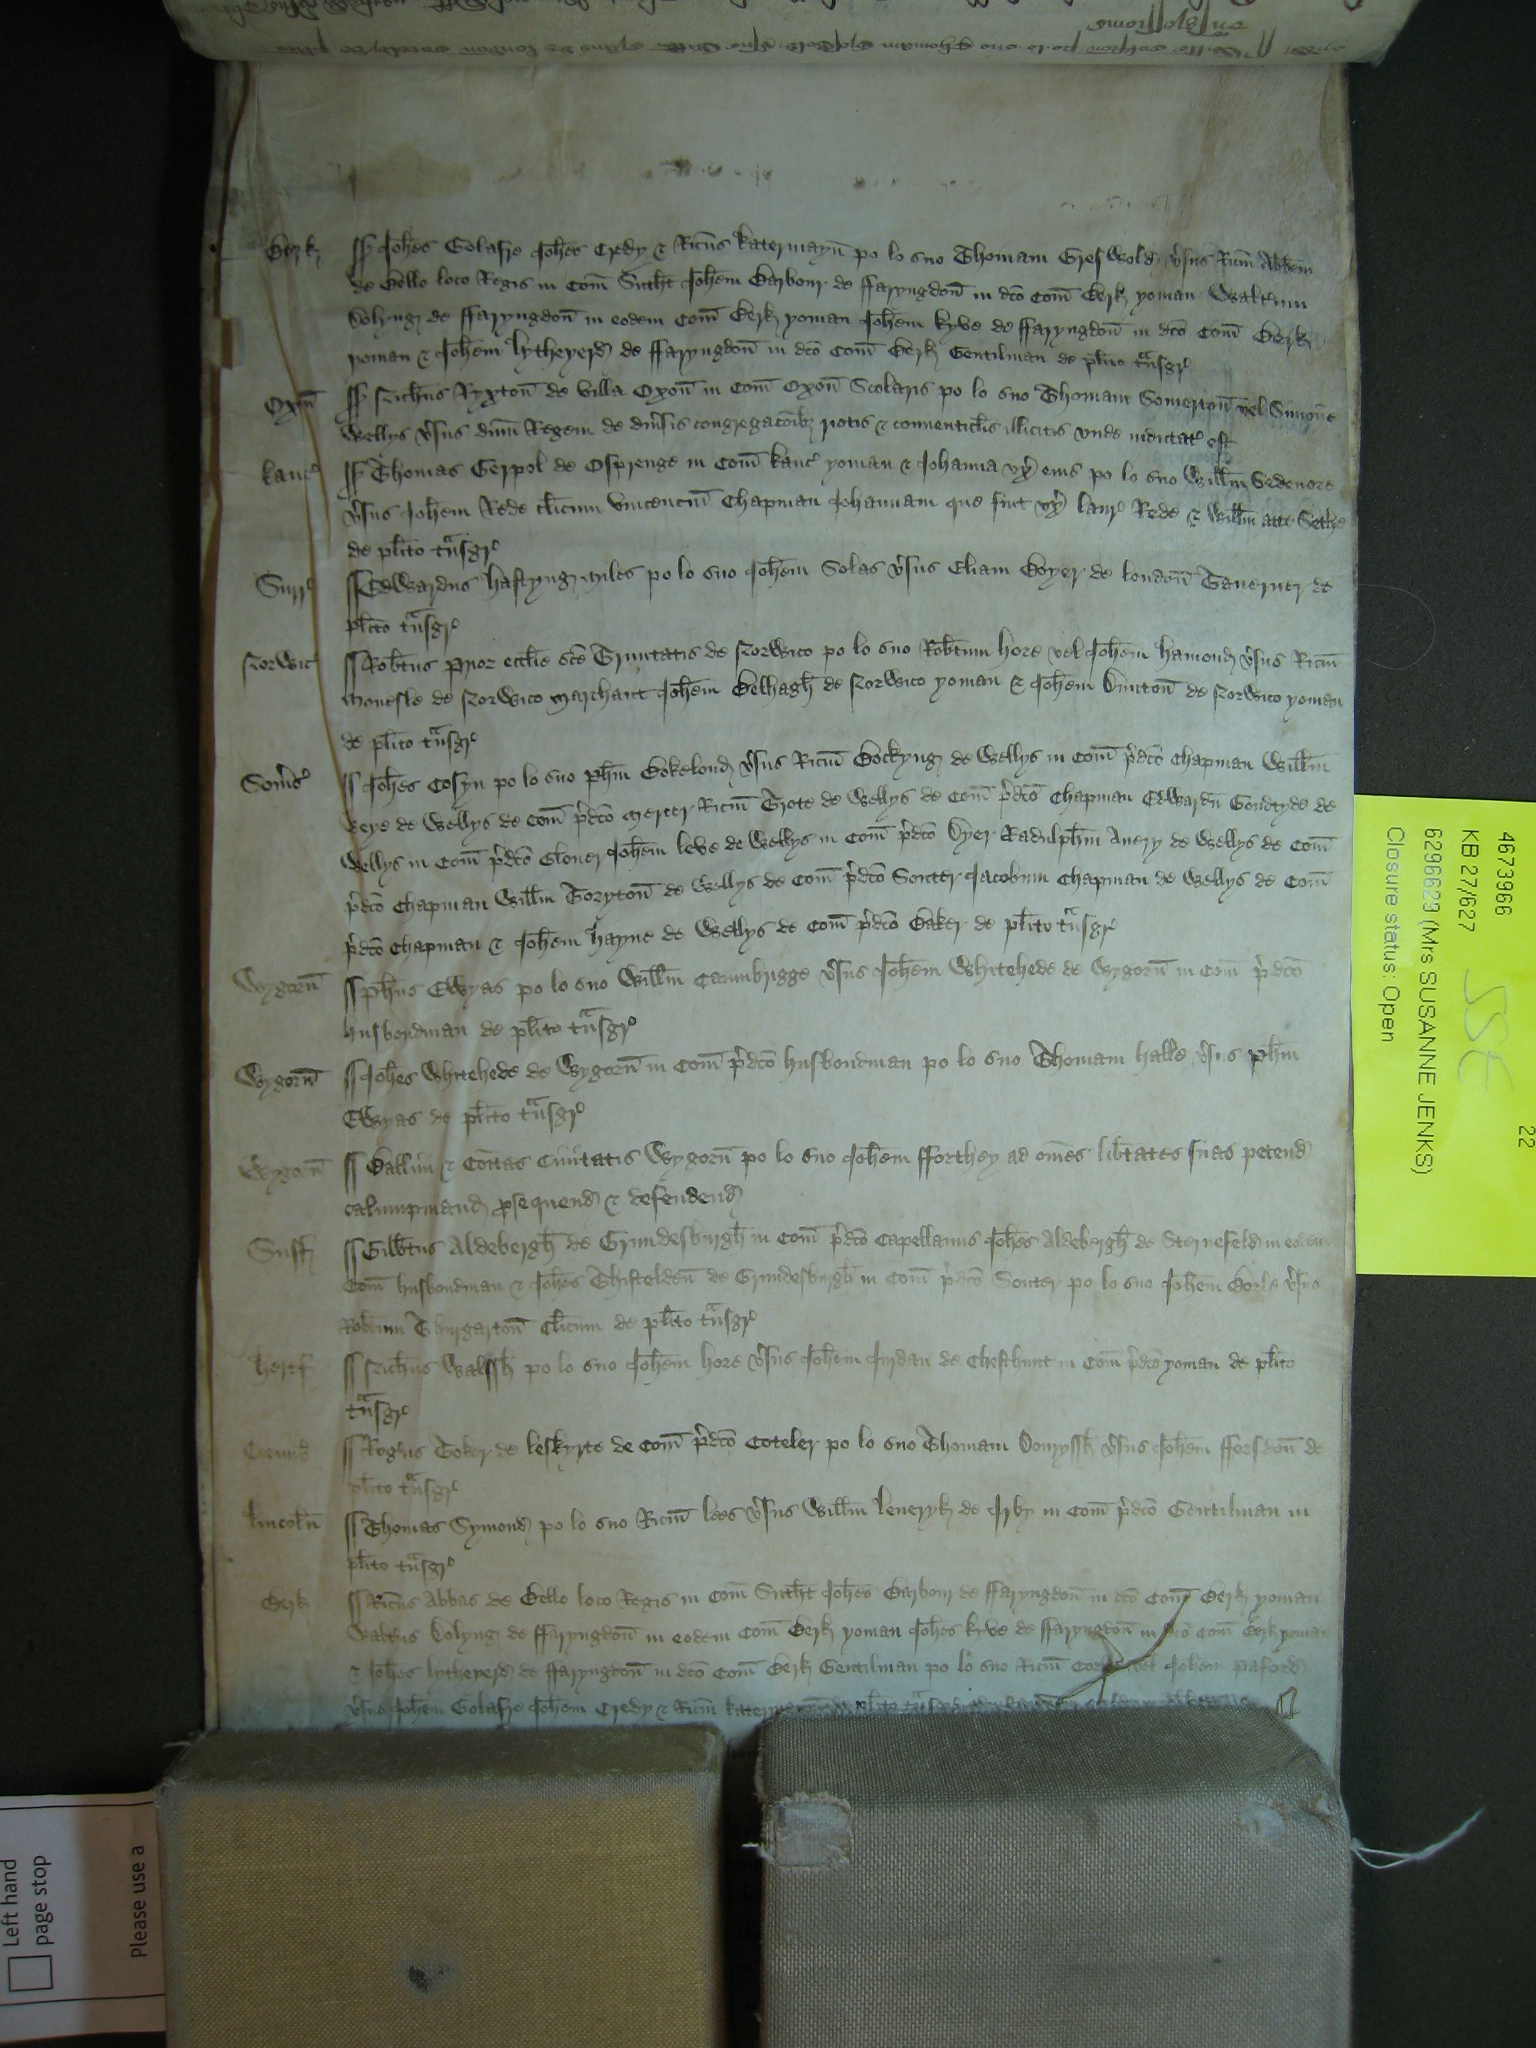 Berk ss Joh̄es Golafre Joh̄es Credy & Ric̄us Katermayn̄ po lo suo Thomam Greswold v̓sus Ric̄m Abb̄em
de Bello loco Regis in Com̄ Suth̄t Joh̄em Barbour de ffaryngdon̄ in dc̄o Com̄ Berk yoman Walterum
de ffaryngdon̄ in eodem Com̄ Berk yoman Joh̄em Kyve de ffaryngdon̄ in dc̄o Com̄ Berk
yoman & Joh̄em lytheyerd de ffaryngdon̄ in dc̄o Com̄ Berk Gentilman de pl̄ito tn̄sgr̓
Oxon̄ ss Nich̄us Ryxton̄ de villa Oxon̄ in Com̄ Oxon̄ Scolaris po lo suo Thomam Somerton̄ vel Simone
Wellys v̓sus dn̄m Regem de div̓sis congregac̄oib̄z & conventicl̄is illicitis unde indictat̓ est
Kanc̓ ss Thomas Gerpol de Osprenge in Com̄ Kanc̓ yoman & Johanna ux̓ eius po lo suo Will̄m Sedenore
v̓sus Joh̄em Rede cl̄icum Vincencium Chapman Johannam que fuit ux̓ laur̓ Rede & Will̄m atte Sethe
de pl̄ito tn̄sgr̓
Surr̓ ss Edwardus hastyng miles po lo suo Joh̄em Solas v̓sus Eliam Boyer de london̄ Taverner de
pl̄ito tn̄sgr̓
Norwic̓ ss Rob̄tus Prior eccl̄ie sc̄e Trinitatis de Norwico po lo suo Rob̄tum hore vel Joh̄em hamond v̓sus Ric̄m
Monesle de Norwico Marchant Joh̄em Belhagh̄ de Norwico yoman & Joh̄em Dunton̄ de Norwico yoman
de pl̄ito tn̄sgr̓
Som̓s̓ ss Joh̄es Cosyn po lo suo Ph̄m Bokelond v̓sus Ric̄m Bockyng de Wellys in Com̄ p̓dc̄o Chapman Will̄m
Veye de Wellys de Com̄ p̓dc̄o Mercer Ric̄m Grote de Wellys de Com̄ p̓dc̄o Chapman Edwardū Goudtyde de
Wellys in Com̄ p̓dc̄o Glover Joh̄em leve de Wellys in Com̄ p̓dc̄o Dyer Radulph̄m Avery de Wellys de Com̄
p̓dc̄o Chapman Will̄m Toryton̄ de Wellys de Com̄ p̓dc̄o Souter Jacobum Chapman de Wellys de Com̄
p̓dc̄o Chapman & Joh̄em hayne de Wellys de Com̄ p̓dc̄o Baker de pl̄ito tn̄sgr̓
Wygorn̄ ss Ph̄us Ewyas po lo suo Will̄m Caumbrigge v̓sus Joh̄em Whitehede de Wygorn̄ in Com̄ p̓dc̄o
husbondman de pl̄ito tn̄sgr̓
Wygorn̄ ss Joh̄es Whitehede de Wygorn̄ in Com̄ p̓dc̄o husbondman po lo suo Thomam halle v̓sus Ph̄m
Ewyas de pl̄ito tn̄sgr̓
Wygorn̄ ss Ballivi & Coītas Civitatis Wygorn̄ po lo suo Joh̄em fforthey ad om̄es lib̄tates suas petend
calumpniand p̱sequend & defendend
Suff ss Gilb̄tus Aldebergh̄ de Grundesburgh̄ in Com̄ p̓dc̄o Capellanus Joh̄es Aldebergh̄ de Sternefeld in eodem
Com̄ husbondman & Joh̄es Thistelden̄ de Grundesburgh̄ in Com̄ p̓dc̄o Souter po lo suo Joh̄em Dorle v̓sus
Rob̄tum Thurgarton̄ Cl̄icum de pl̄ito tn̄sgr̓
hertf ss Nich̄us Walssh̄ po lo suo Joh̄em hore v̓sus Joh̄em Jurdan de Chesthunt in Com̄ p̓dc̄o yoman de pl̄ito
tn̄sgr̓
Cornub̓ ss Rog̓us Toker de leskyrte de Com̄ p̓dc̄o Coteler po lo suo Thomam Donyssh̄ v̓sus Joh̄em ffersdon̄ de
pl̄ito tn̄sgr̓
lincoln̄ ss Thomas Symond po lo suo Ric̄m lees v̓sus Will̄m leveryk de Irby in Com̄ p̓dc̄o Gentilman in
pl̄ito tn̄sgr̓
Berk ss Ric̄us Abbas de Bello loco Regis in Com̄ Suth̄t Joh̄es Barbour de ffaryngdon̄ in dc̄o Com̄ Berk yoman
Walt̓us de ffaryngdon̄ in eodem Com̄ Berk yoman Joh̄es Kyve de ffaryngdon̄ in dc̄o Com̄ Berk yoman
& Joh̄es lytheyerd de ffaryngdon̄ in dc̄o Com̄ Berk Gentilman po lo suo Ric̄m vel Joh̄em
v̓sus Joh̄em Golafre Joh̄em Credy & Ric̄m
4673966 22
KB 27/627 SSE
6296629 (Mrs SUSANNE JENKS)
Closure status: Open
Left hand
page stop
Please use a